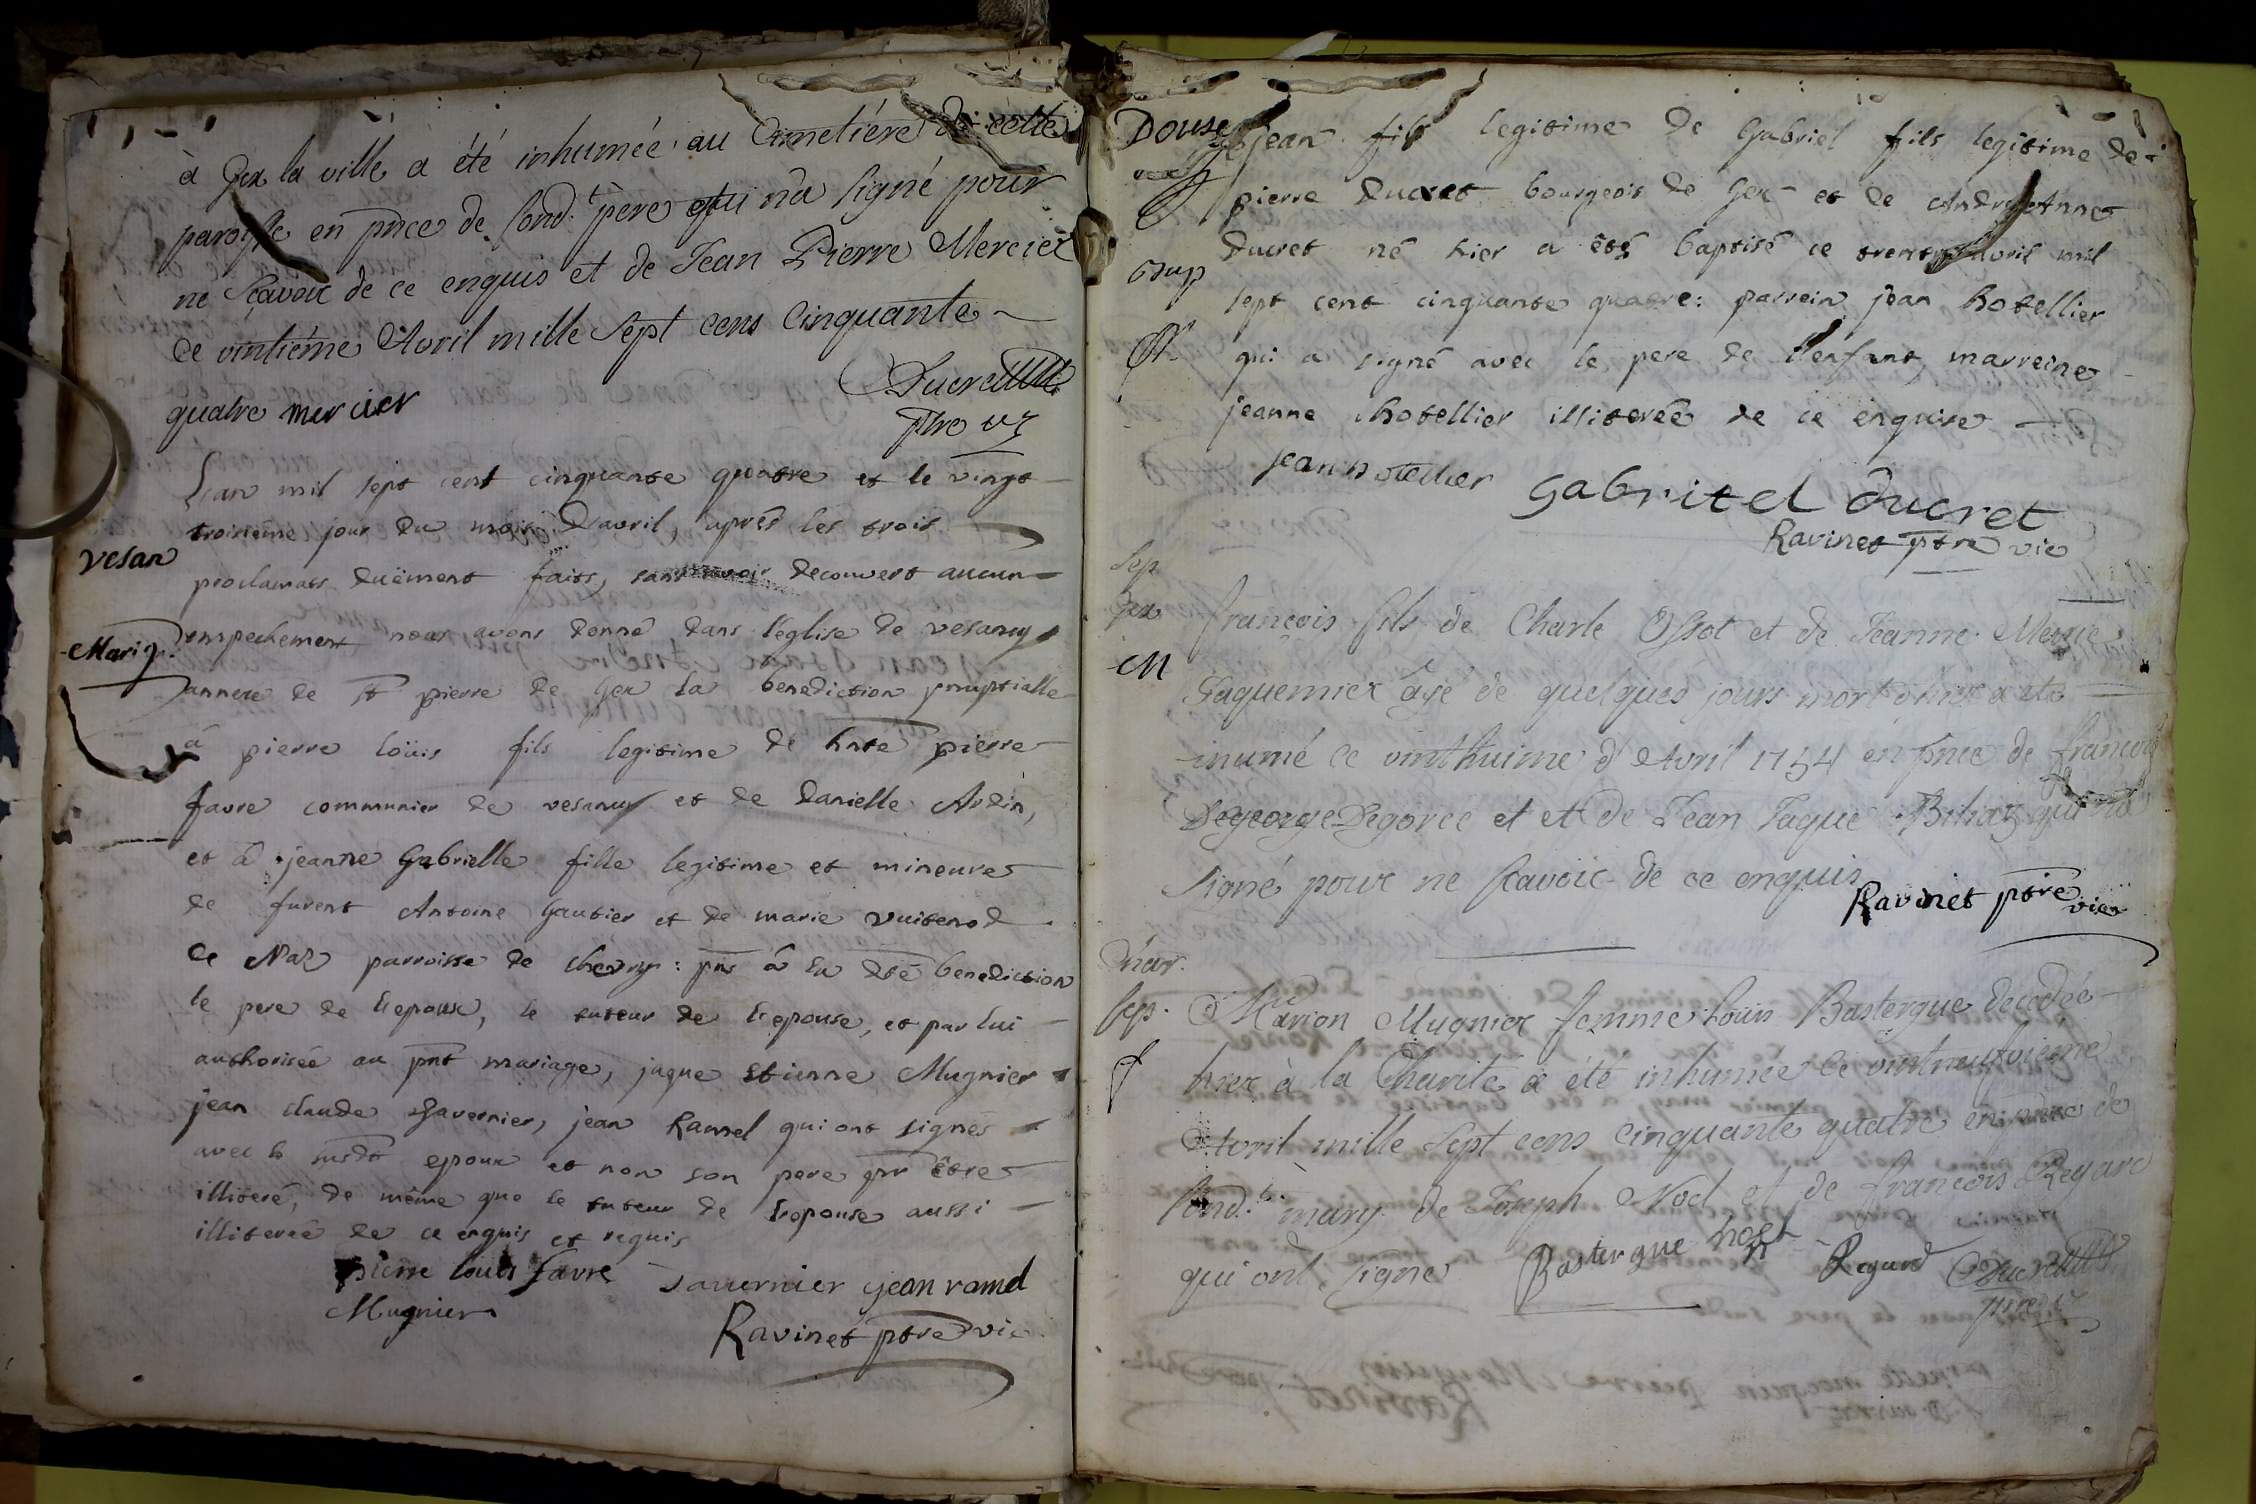 à Gex la ville a été inhumée au Cimetiére de cette
paroisse en pñce de sond.t pere qui n'a signé pour
ne sçavoir de ce enquis et de Jean Pierre Mercier
ce vintiéme Avril mille sept cens Cinquante
quatre mercier Ducret
ptre vic
Lan mil sept cent cinquante quatre et le vingt
troisieme jour du mois d'avril, apres les trois
vesan
proclamats duëment faits, sans avoir decouvert aucun
Mariag.
empechement nous avons donné dans l'église de vesancy
annexe de st pierre de Gex la benediction nuptialle
a pierre loüis fils legitime de hnte pierre
favre communier de vesancy et de Danielle Ardin,
et â jeanne Gabrielle fille legitime et mineure
de furent Antoine Gautier et de marie vuitenod
de Naz parroisse de chevry: pñs â la dte benediction
le pere de l'epoux, le tuteur de l'epouse, et par lui
authorisée au pñt mariage, jaque Etienne Mugnier
jean claude Tavernier, jean Ramel qui ont signés
avec le susdt epoux et non son pere pr être
illiteré, de même que le tuteur de l'epouse aussi
illiterée de ce enquis et requis
pierre louis favre Tavernier jean ramel
Mugnier
Ravinet ptre vic
Douse
jean fils legitime de Gabriel fils legitime de
pierre Ducret bourgeois de Gex et de Andrée Anne
Ducret né hier a êté baptisé ce trente avril mil
bap
sept cent cinquante quatre: parrein jean hotellier
qui a signé avec le pere de l'enfant, marreine
jeanne hotellier illiterée de ce enquise
jean hotellier Gabritel ducret
Ravinet ptre vic
Sep
Gex
françois fils de Charle Ossot et de Jeanne Marie
M
Jaquemier âgé de quelques jours mort hier a été
inumé ce vinthuime d'Avril 1754 en pñce de francois
Degeorge Degorce et et de Jean Jaque qui n'a
signé pour ne sçavoir de ce enquis
Ravinet ptre vic
Char.
Sep.
Marion Mugnier femme Loüis Bastergue decedée
f
hier à la Charité a été inhumée ce vintneufvieme
Avril mille sept cens cinquante quatre en pñce de
sond.t mary de Joseph Noel et de francois Regard
qui ont signé Bastergue noel Regard Ducret
ptre vic